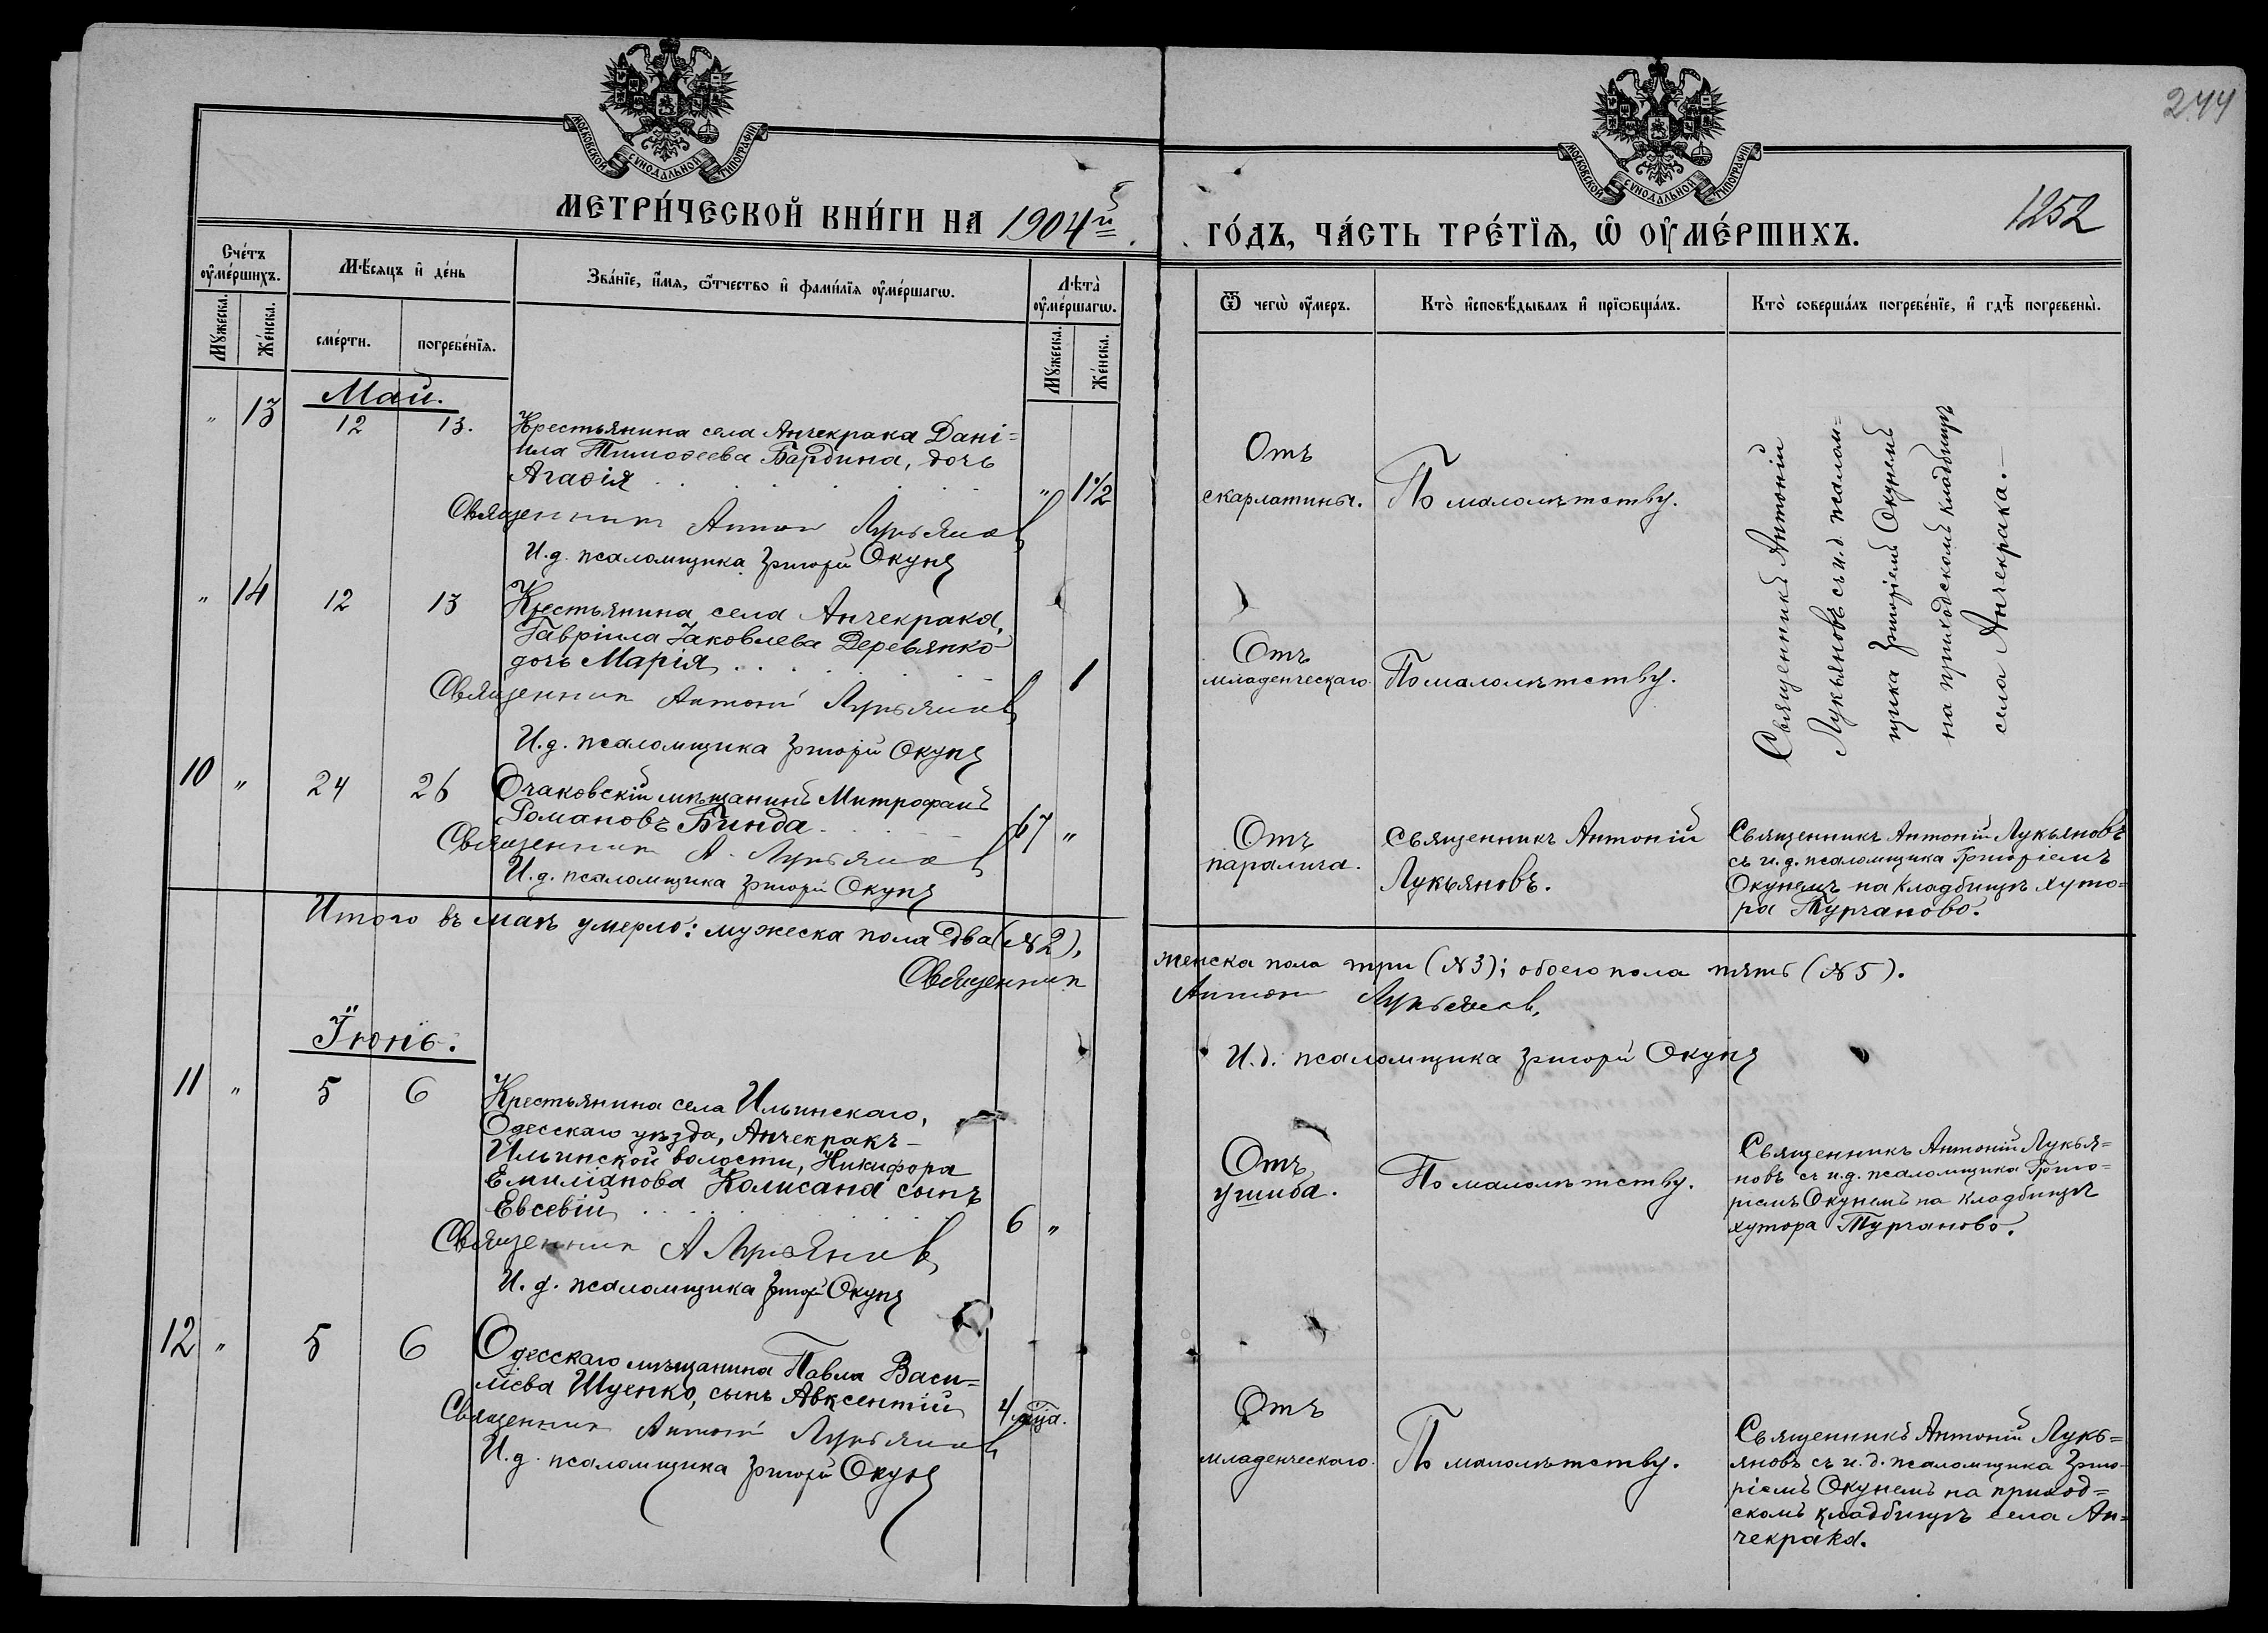 244
МОСКОВСКОЙ СѴНОДАЛЬНОЙ ТИПОГРАФІИ
МОСКОВСКОЙ СѴНОДАЛЬНОЙ ТИПОГРАФІИ
МЕТРИ́ЧЕСКОЙ КНИ́ГИ НА 1904й
ГО́ДЪ, ЧА́СТЬ ТРЕ́ТЇѦ, Ѡ҆ ОУ҆МЕ́РШИХЪ.
1252
Сче́тъ оу҆ме́ршихъ.
Мѣ́сяцъ и҆ де́нь
Зва́нїе, и҆́мѧ, ѻ҆́тчество и҆ фами́лїѧ оу҆ме́ршагѡ.
Лѣта̀ оу҆ме́ршагѡ.
Мꙋ́жеска.
Же́нска.
сме́рти.
погребе́нїѧ.
Мꙋ́жеска.
Же́нска.
Ѿ чегѡ̀ оу҆́меръ.
Кто̀ и҆сповѣ́дывалъ и҆ прїѻбща́лъ.
Кто̀ соверша́лъ погребе́нїе, и҆ гдѣ̀ погребены̀.
Май.
" 13 12 13.
Крестьянина села Анчекрака Дані=
ила Тимоѳеева Бардина, дочь
Агаѳія
" 1½
Священник Антон Лукьянов
И.д. псаломщика Григорій Окунь
Отъ
скарлатины.
По малолѣтству.
Священникъ Антоній
Лукьяновъ съ и.д. псалом=
щика Григоріемъ Окунемъ
на приходскомъ кладбищѣ
села Анчекрака.
" 14 12 13
Крестьянина села Анчекрака,
Гавріила Іаковлева Деревянко
дочь Марія
1
Священник Антоній Лукьянов
И.д. псаломщика Григорій Окунь
Отъ
младенческаго.
По малолѣтству.
10 " 24 26
Очаковскій мѣщанинъ Митрофанъ
Романовъ Бинда
67 "
Священник А. Лукьянов
И.д. псаломщика Григорій Окунь
Отъ
паралича.
Священникъ Антоній
Лукьяновъ.
Священникъ Антоній Лукьяновъ
съ и.д. псаломщика Григоріемъ
Окунемъ на кладбищѣ хуто=
ра Турчаново.
Итого въ маѣ умерло: мужеска пола два (№2),
женска пола три (№3); обоего пола пять (№5).
Священник
Антон Лукьянов,
И.д. псаломщика Григорій Окунь
Іюнь.
11 " 5 6
Крестьянина села Ильинскаго,
Одесскаго уѣзда, Анчекракъ-
Ильинской волости, Никифора
Емиліанова Колисана сынъ
Евсевій
6 "
Священник А Лукьянов
И.д. псаломщика Григорій Окунь
Отъ
ушиба.
По малолѣтству.
Священникъ Антоній Лукья=
новъ съ и.д. псаломщика Григо-
ріемъ Окунемъ на кладбищѣ
хутора Турчаново.
12 " 5 6
Одесскаго мѣщанина Павла Васи=
ліева Шуенко, сынъ Авксентій
4
Священник Антоній Лукьянов
И.д. псаломщика Григорій Окунь
Отъ
младенческаго.
По малолѣтству.
Священникъ Антоній Лукь=
яновъ съ и.д. псаломщика Григо-
ріемъ Окунемъ на приход=
скомъ кладбищѣ села Ан=
чекрака.